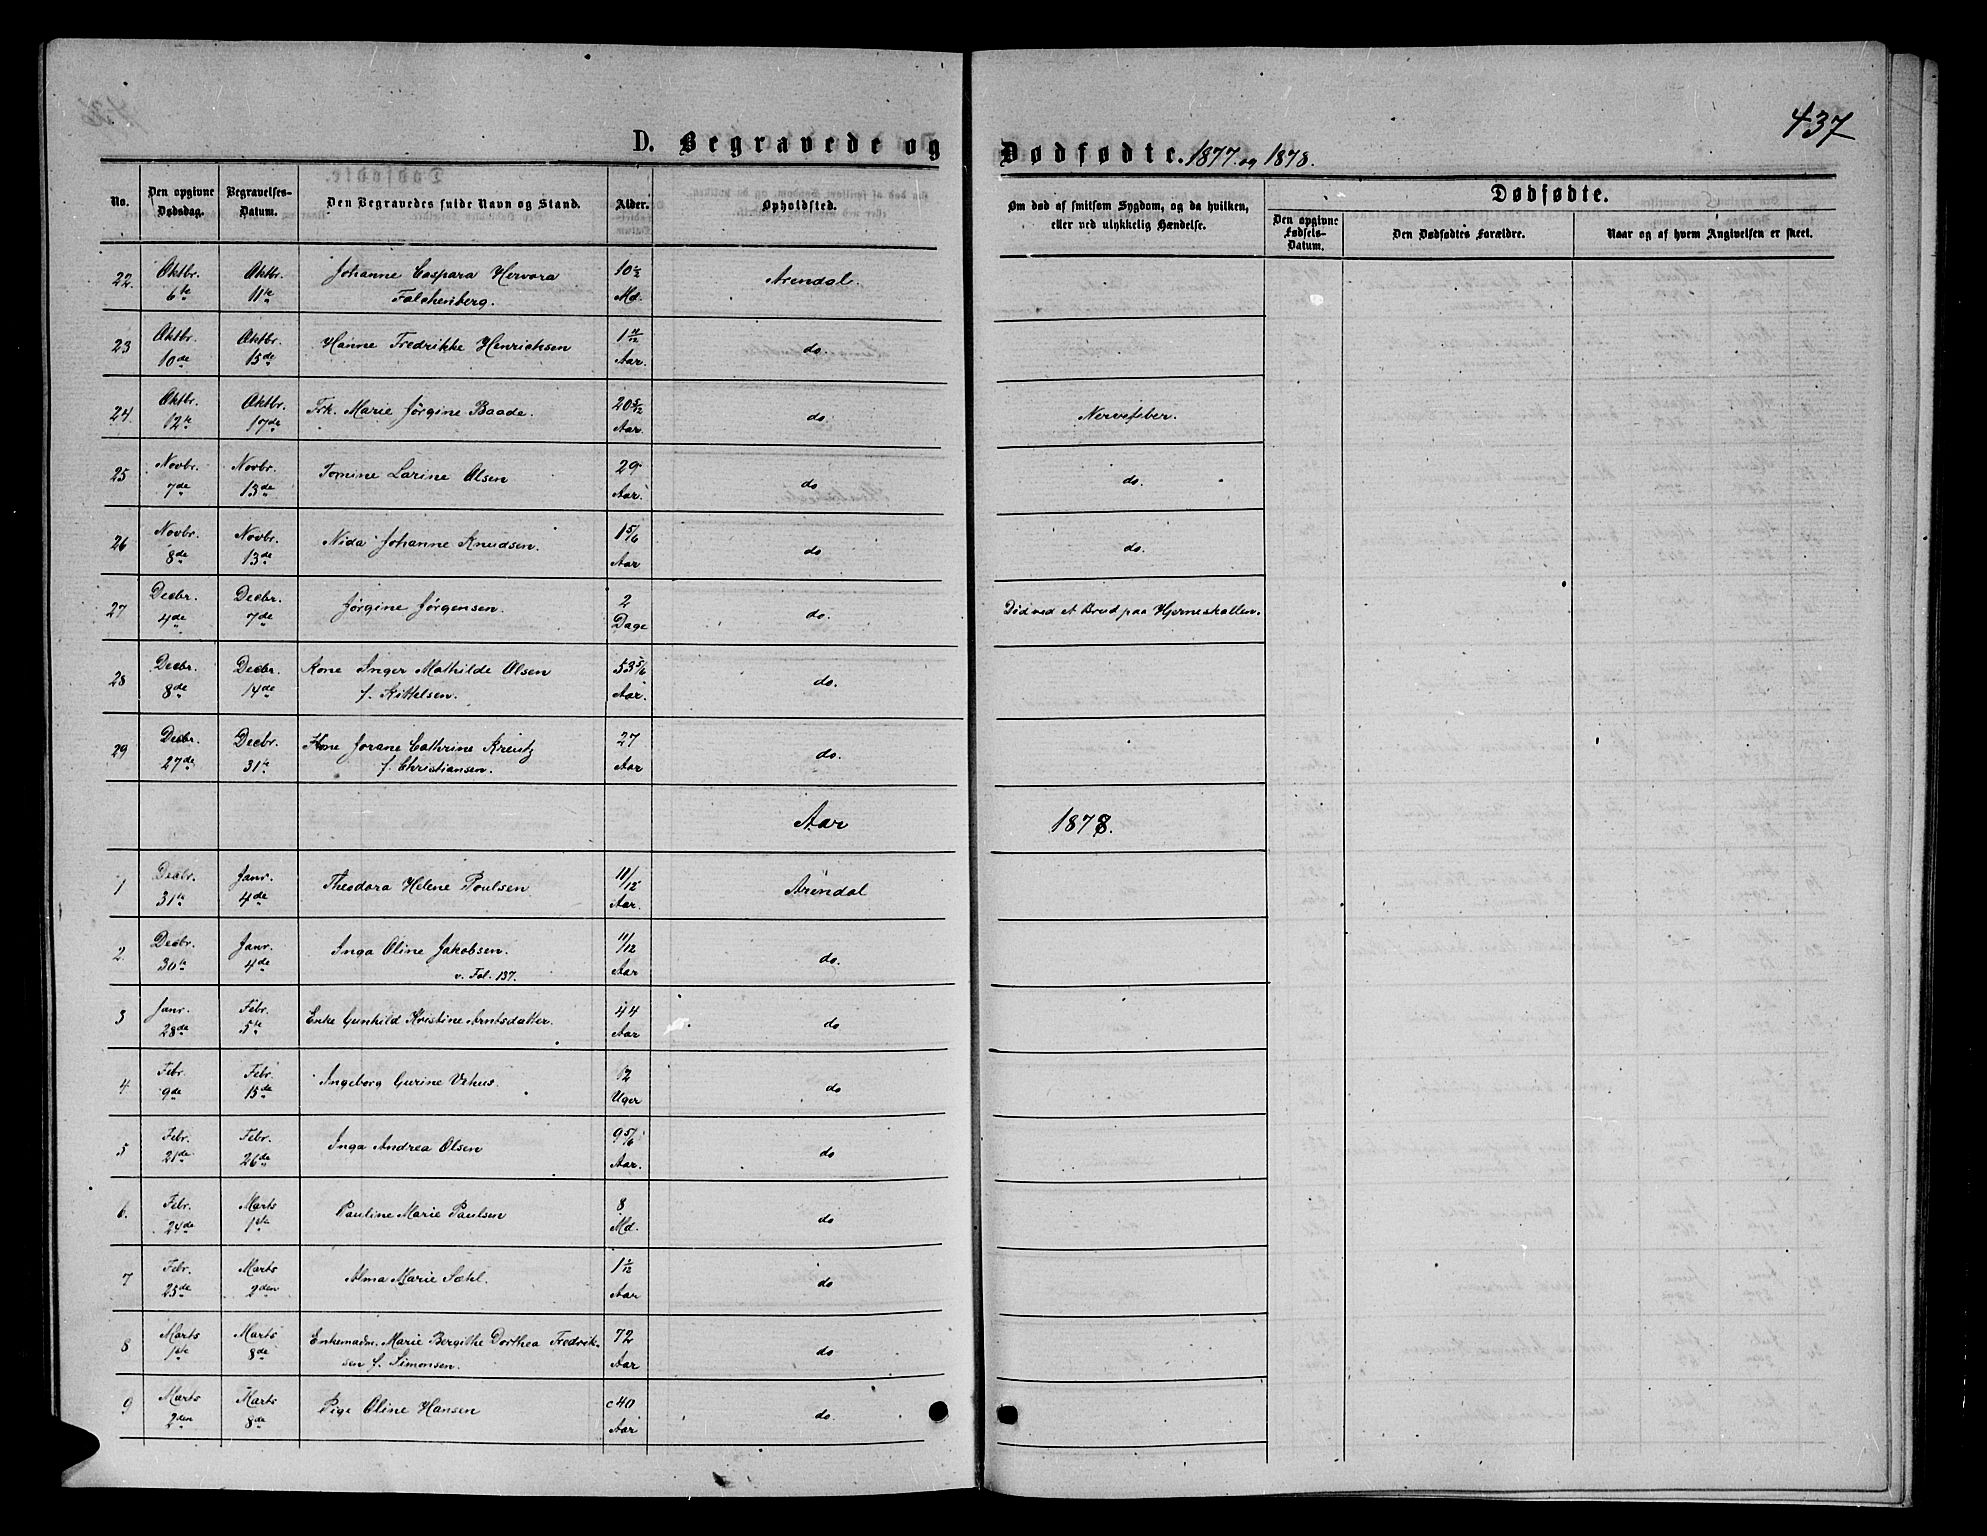 437
D. Begravede og Dødfødte. 1877 og 1878.
No. | Den opgivne Dødsdag. | Begravelses-Datum. | Den Begravedes fulde Navn og Stand. | Alder. | Opholdsted. | Om død af smitsom Sygdom, og da hvilken, eller ved ulykkelig Hændelse. | Dødfødte.
Den opgivne Fødsels-Datum. | Den Dødfødtes Forældre. | Naar og af hvem Angivelsen er skeet.
22. | Oktbr. 6te | Oktbr. 11te | Johanne Caspara Hervora Falchenberg. | 10½ Md. | Arendal.
23 | Oktbr. 10de | Oktbr. 15de | Hanne Fredrikke Henrichsen | 1 11/12 Aar. | do.
24. | Oktbr. 12te | Oktbr. 17de | Frk. Marie Jørgine Baade. | 20 5/12 Aar. | do | Nervefeber.
25 | Novbr. 7de | Novbr. 13de | Tomine Larine Olsen | 29 Aar. | do | do.
26 | Novbr. 8de | Novbr. 13de | Nida Johanne Knudsen. | 1 5/6 Aar | do | do.
27 | Decbr. 4de | Decbr. 7de | Jørgine Jørgensen. | 2 Dage | do. | Død ved et Brud paa Hjerneskallen.
28 | Decbr. 8de | Decbr. 14de | Kone Inger Mathilde Olsen f. Kittelsen. | 53 5/6 Aar. | do.
29 | Decbr. 27de | Decbr. 31te | Kone Jorane Cathrine Kreutz f. Christiansen. | 27 Aar | do.
Aar 1878.
1 | Decbr. 31te | Janr. 4de | Theodora Helene Poulsen | 11/12 Aar. | Arendal
2. | Decbr. 30te | Janr. 4de | Inga Oline Jakobsen. v. Fol. 137. | 11/12 Aar | do.
3 | Janr. 28de | Febr. 5te | Enke Gunhild Kristine Arntsdatter. | 44 Aar | do
4. | Febr. 9de | Febr. 15de | Ingeborg Gurine | 12 Uger | do
5 | Febr. 21de | Febr. 26de | Inga Andrea Olsen | 9 5/6 Aar. | do
6. | Febr. 24de | Marts 1ste | Pauline Marie Paulsen | 8 Md. | do
7 | Febr. 25de | Marts 2den | Alma Marie Sæhl. | 1 1/12 Aar | do
8 | Marts 1ste | Marts 8de | Enkemadm. Marie Bergithe Dorthea Fredriksen f. Simonsen. | 72 Aar | do
9 | Marts 2den | Marts 8de | Pige Oline Hansen | c40 Aar | do.